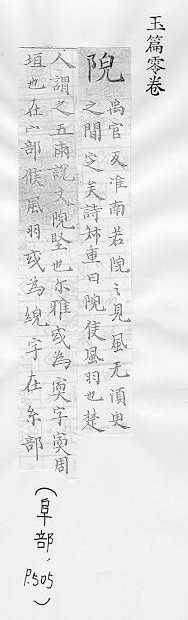 玉篇零卷
院
禹官反淮南若院〻見風无須臾
之間定矣許叔重曰院候風羽也楚
人謂之五兩說文院堅也尔雅或為寏字寏周
垣也在宀部候風羽或為綄字在糸部
(阜部, P.505)